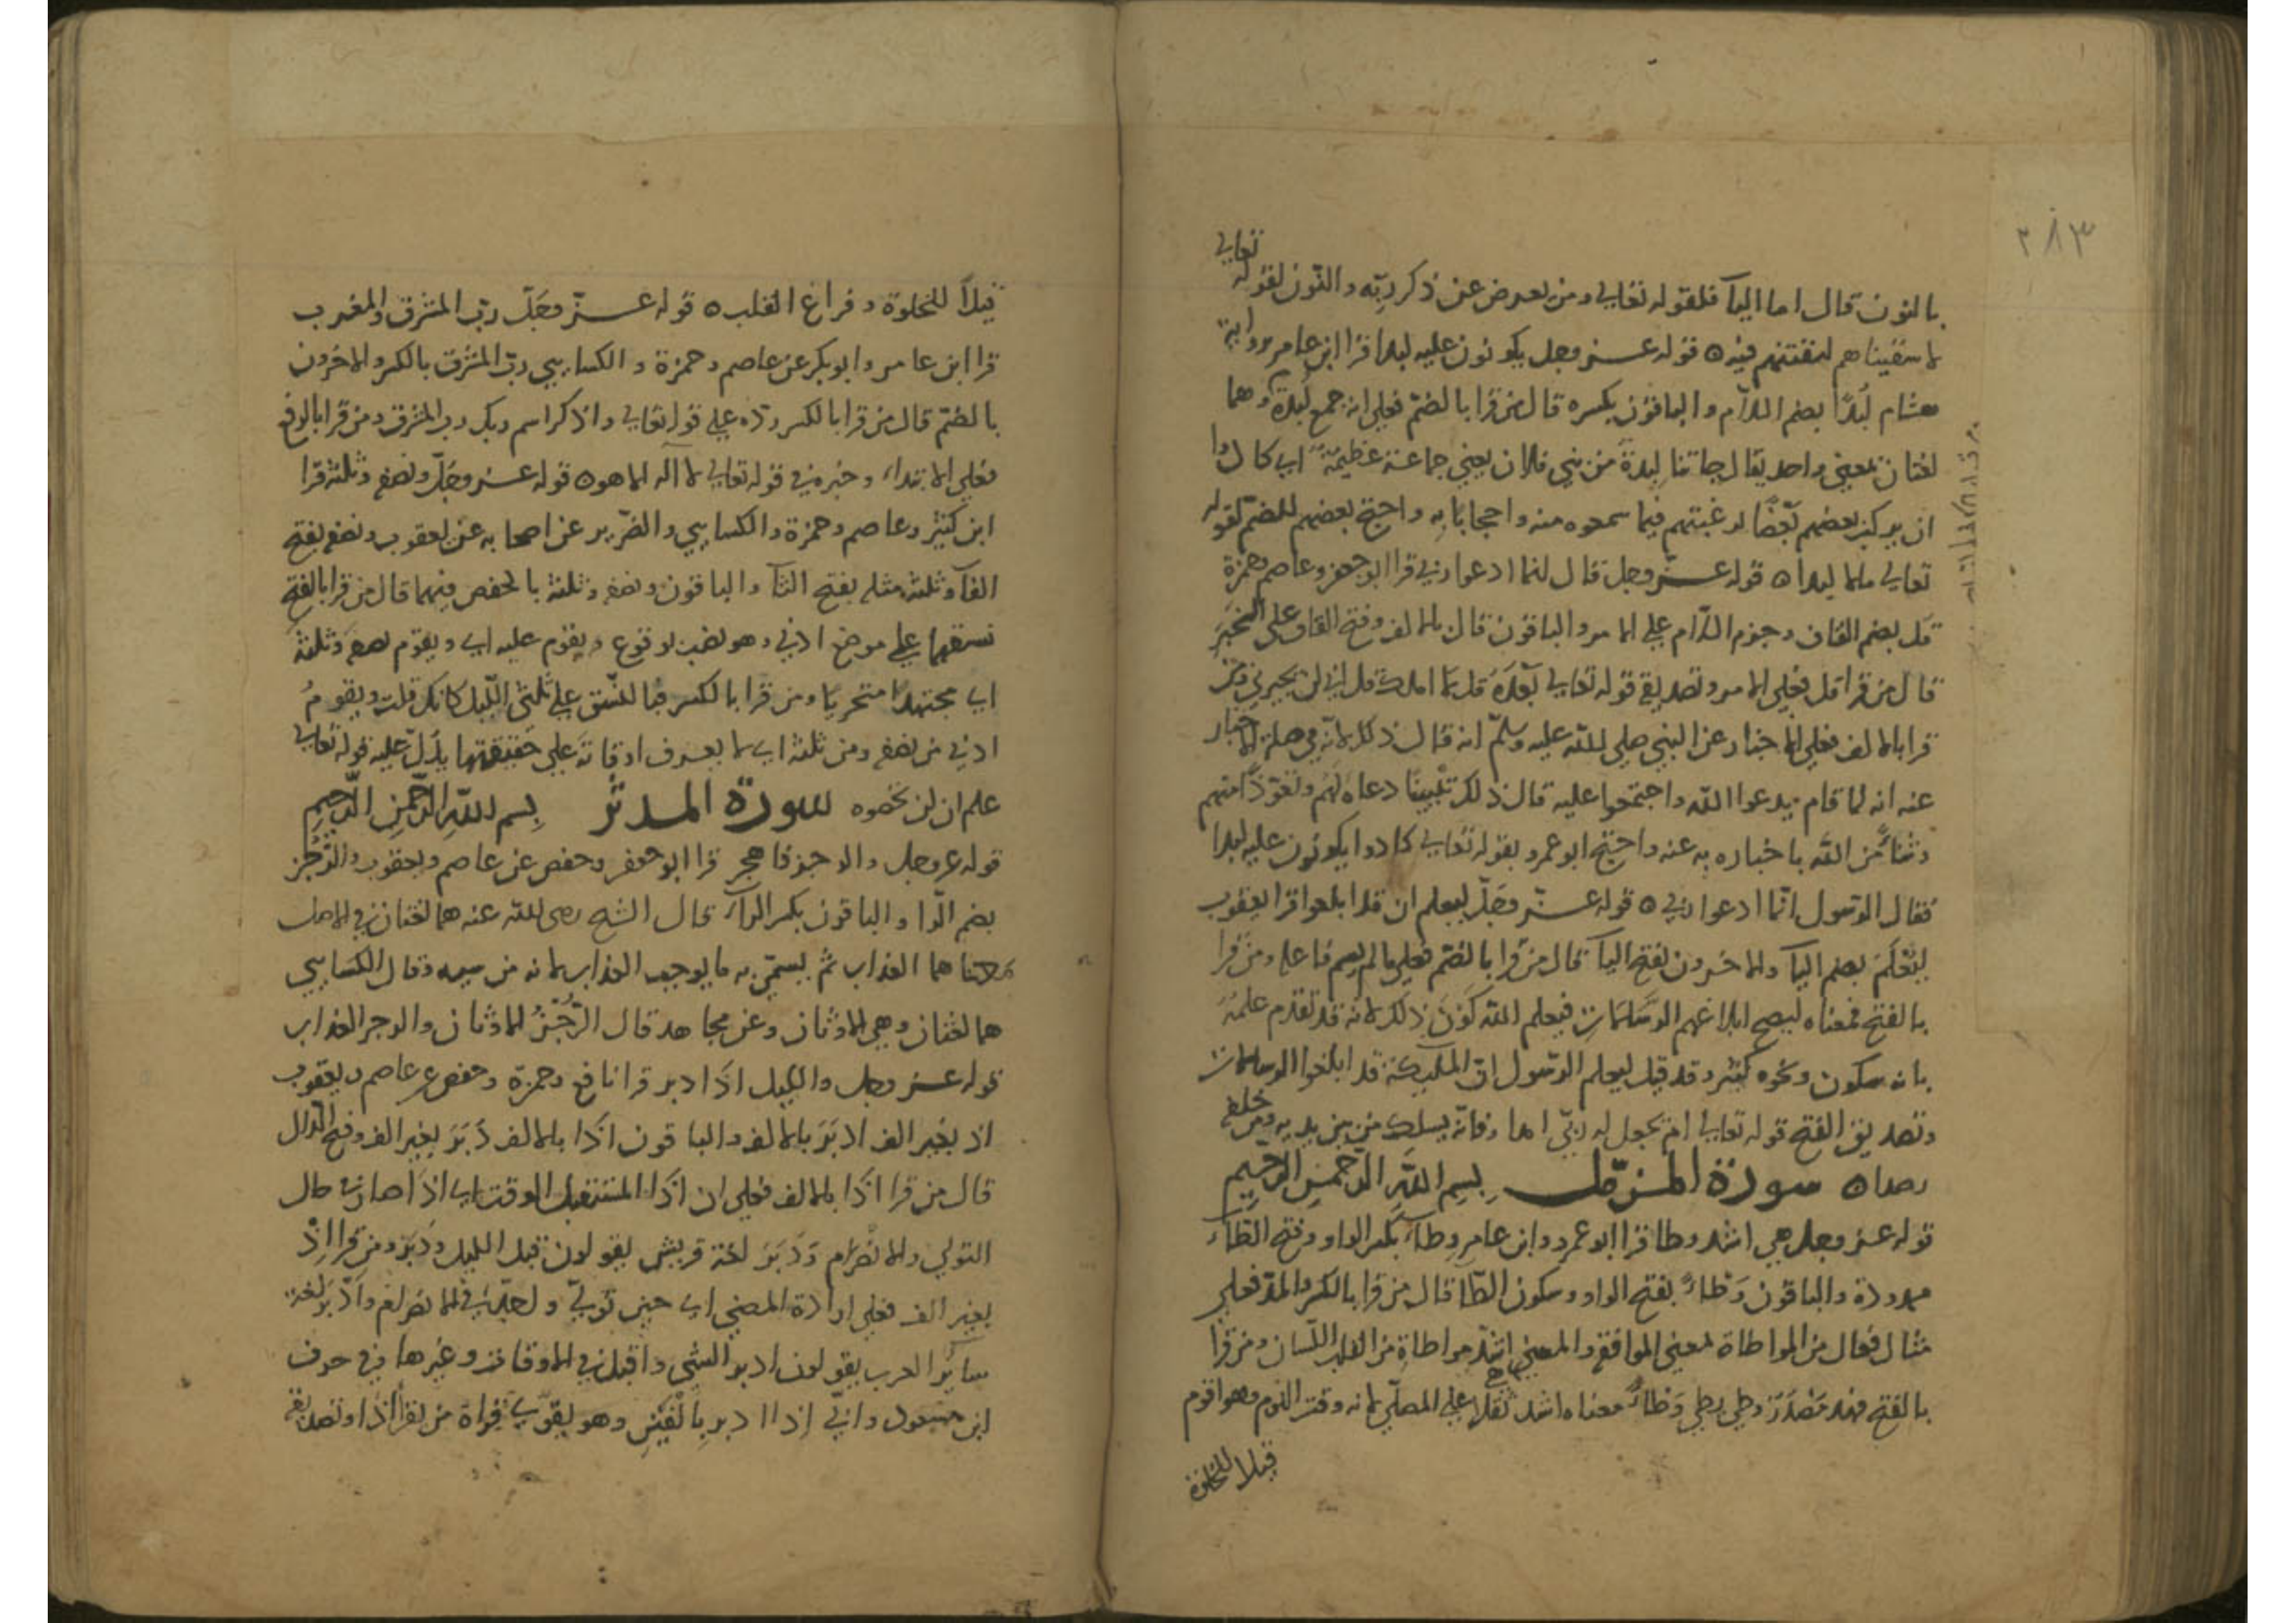 ٢٨٣
تعالى
بالنون قال اما اليآ فلقوله تعالى ومن يعرض عن ذكر ربّه والنّون لقوله
لاسقيناهم لنفتنهم فيه ٥ قوله عـز وجل يكونون عليه لبدا قرا ابن عامر برواية
هشام لُبدًا بضم اللاّم والباقون بكسره قال من قرا بالضمّ فعلى انه جمع لُبدة وهما
لغتان بمعنى واحد يقال جاتنا لِبدة من بني فلان يعني جماعة عظيمة اي كادوا
ان يركب بعضهم بَعْضًا لرغبتهم فيما سمعوه منه واعجابًا به واحتج بعضهم للضم لقوله
تعالى مالا لبدا ٥ قوله عـزّ وجل قال انما ادعوا ربي قرا ابو جعفر وعاصم وحمزة
قل بضم القاف وجزم اللّام على الامر والباقون قال بالالف وفتح القاف على الخبر
قال من قرا قل فعلى الامر وتصديقه قوله تعالى بَعْدَهُ قل لا املك قل اني لن يجيرني ومن
قرا بالالف فعلى الاخبار عن النبي صلى الله عليه وسلّم انه قال ذلك لانّه في صلة الاخبار
عنه انه لما قام يدعوا الله واجتمعوا عليه قال ذلك دعاء لهم وتعوّذًا منهم
وثناءً من الله باخباره به عنه واحتج ابو عمرو بقوله تعالى كادوا يكونون عليه لبدا
فقال الرّسول انّما ادعوا ربي ٥ قوله عـزّ وجَلّ ليعلم ان قد ابلغوا قرا يعقوب
ليُعْلَمَ بضم اليآ والاخرون بفتح اليآ قال من قرا بالضم فعلى ما لم يسم فاعله ومن قرا
بالفتح فمعناه ليصح ابلاغهم الرسالات فيعلم الله كَوْنَ ذلك لانه قد تقدّم علمُه
بانه سيكون ونحوه كثير وقد قيل ليعلم الرّسول انّ المليكة قد ابلغوا الرسالات
وتصديق الفتح قوله تعالى ام يجعل له ربّي امدا وفانّه يسلك من بين يديه ومن خلفه
رصدا ٥ سورة المـزّمّل بِسمِ اللّهِ الرّحمنِ الرّحِيمِ
قوله عـز وجل هي اشد وطا قرا ابو عمرو وابن عامرٍ وِطآءً بكسر الواو وفتح الطّآء
ممدودة والباقون وَطْاءً بفتح الواو وسكون الطّا قال من قرا بالكسر والمدّ فعلى
مثال فِعال من المواطاة بمعنى الموافقة والمعنى اشدّ مواطاةً من القلب اللّسان ومن قرا
بالفتح فهو مَصْدَرُ وطي يطي وَطْاءً معناه اشد ثقلا على المصلّي لانه وقت النوم وهو اقوم
قيلا للخلوة
قيلاً للخلوة وفراغ القلب ٥ قوله عـزّ وجَلّ ربّ المشرق والمغرب
قرا ابن عامر وابو بكر عن عاصم وحمزة والكسايي ربّ المشرق بالكسر والاخرون
بالضمّ قال من قرا بالكسر ردّه على قوله تعالى واذكر اسم ربك رب المشرق ومن قرا بالرفع
فعلى الابتداء وخبره في قوله تعالى لا اله الا هو ٥ قوله عـز وجَلّ ونصفه وثلثه قرا
ابن كثير وعاصم وحمزة والكسايي والضّرير عن اصحابه عن يعقوب ونصفه بفتح
الفآ وثلثه مثله بفتح الثآ والباقون ونصفه وثلثه بالخفض فيهما قال من قرا بالفتح
نسقهما على موضع ادنى وهو نصب لوقوع ويقوم عليه اي ويقوم نصفه وثلثه
اي مجتهدًا متحريًا ومن قرا بالكسر فبالنّسق على ثلثي اللّيل كانك قلت ويقومُ
ادنى من نصفه ومن ثلثه اي لا يعرف اوقاته على حقيقتها يدُلّ عليه قوله تعالى
علم ان لن تحصوه سورة المدثر بِسم اللهِ الرّحمنِ الرّحِيمِ
قوله عز وجل والرجز فاهجر قرا ابو جعفر وحفص عن عاصم ويعقوب والرُّجْز
بضم الّرا والباقون بكسر الرآء قال الشيخ رضي الله عنه هما لغتان في الاصل
معناهما العذاب ثم يسمّى به ما يوجب العذاب لانه من سببه وقال الكسايي
هما لغتان وهي الاوثان وعن مجاهد قال الرُّجْزُ الاوثان والرجز العذاب
قوله عـز وجل والليل اذا ادبر قرا نافع وحمزة وحفص عن عاصم ويعقوب
اذ بغير الف ادبَرَ بالالف والباقون اذَا بالالف دَبَرَ بغير الف وفتح الدّال
قال من قرا اذَا بالالف فعلى ان اذَا المستقبل الوقت اي اذا صار في حال
التولي والانصرام وَدَبَرَ لغة قريش يقولون قبل الليل ودَبَر ومن قرا اِذْ
بغير الف فعلى ارادة المضي اي حين تولّى في الانصرام وادبر لغة
سائر العرب يقولون ادبر الشي واقبل في الاوقات وغيرها في حرف
ابن مسعود واُبيّ إذا ادبر بِالْفَيْنِ وهو يقوّي قراة من يقرا اذا وتصديقه